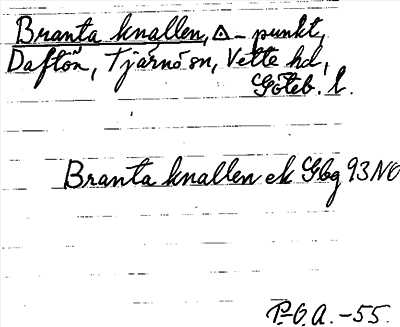 Branta knallen, △-punkt,
Daftön, Tjärnö sn, Vette hd,
Göteb. l.
Branta knallen ek Gbg 93 NO
P.-O.A. -55.